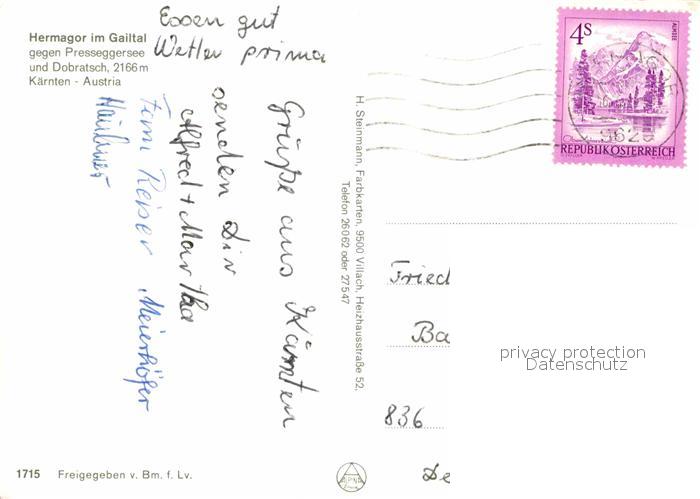 Hermagor im Gailtal
gegen Presseggersee
und Dobratsch, 2166 m
Kärnten - Austria
Essen gut
Wetter prima
Grüße aus Kärnten
senden Dir
Alfred + Martha
Fam. Reiser Meierhöfer
H. Steinmann, Farbkarten, 9500 Villach, Heizhausstraße 52,
Telefon 26062 oder 27547
4S
ALMSEE
REPUBLIK ÖSTERREICH
962
Fried
Ba
836
De
privacy protection
Datenschutz
1715 Freigegeben v. Bm. f. Lv.